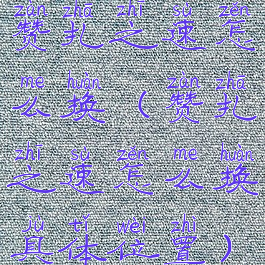 zàn zhā zhī sù zěn
赞扎之速怎
me huàn zàn zhā
么换（赞扎
zhī sù zěn me huàn
之速怎么换
jù tǐ wèi zhì
具体位置）